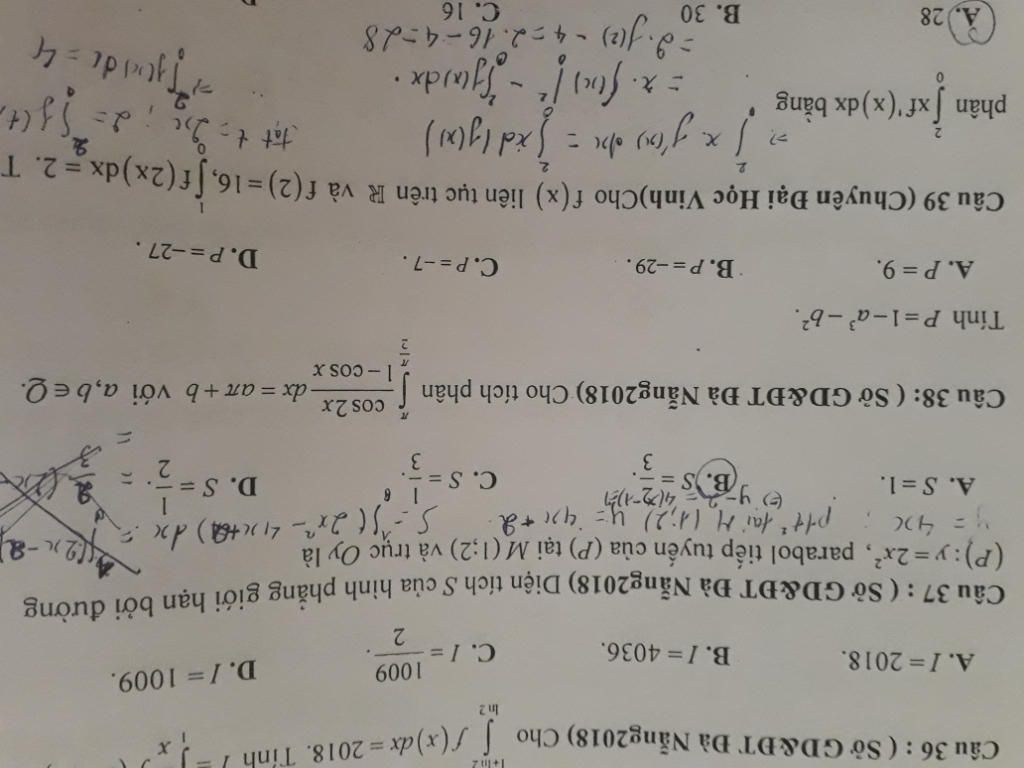 Câu 36 : ( Sở GD&ĐT Đà Nẵng2018) Cho ∫_{ln 2}^{1+ln 2} f(x)dx = 2018. Tính I = ∫_1 1/x f(
A. I = 2018. B. I = 4036. C. I = 1009/2. D. I = 1009.
Câu 37 : ( Sở GD&ĐT Đà Nẵng2018) Diện tích S của hình phẳng giới hạn bởi đường
(P): y = 2x², parabol tiếp tuyến của (P) tại M(1;2) và trục Oy là
y' = 4x : ptt² tại M (1;2) y = 4x + 2
(=) y - 2 = 4(x-1)
A. S = 1. B. S = 2/3. C. S = 1/3. D. S = 1/2.
Câu 38: ( Sở GD&ĐT Đà Nẵng2018) Cho tích phân ∫_{π/2}^{π} cos2x/(1−cos x) dx = aπ + b với a, b ∈ Q.
Tính P = 1 − a³ − b².
A. P = 9. B. P = −29. C. P = −7. D. P = −27.
Câu 39 (Chuyên Đại Học Vinh)Cho f(x) liên tục trên ℝ và f(2) = 16, ∫_0^1 f(2x)dx = 2. T
=> ∫_0^2 x f'(x) dx = ∫_0^2 x d(f(x))
Đặt t = 2x ; 2 = ∫_0^2 f(t)
phân ∫_0^2 xf'(x)dx bằng
= x. f(x) |_0^2 - ∫_0^2 f(x)dx.
=> ∫_0^2 f(x)dx = 4
= 2. f(2) - 4 = 2.16 - 4 = 28
A. 28 B. 30 C. 16 D.